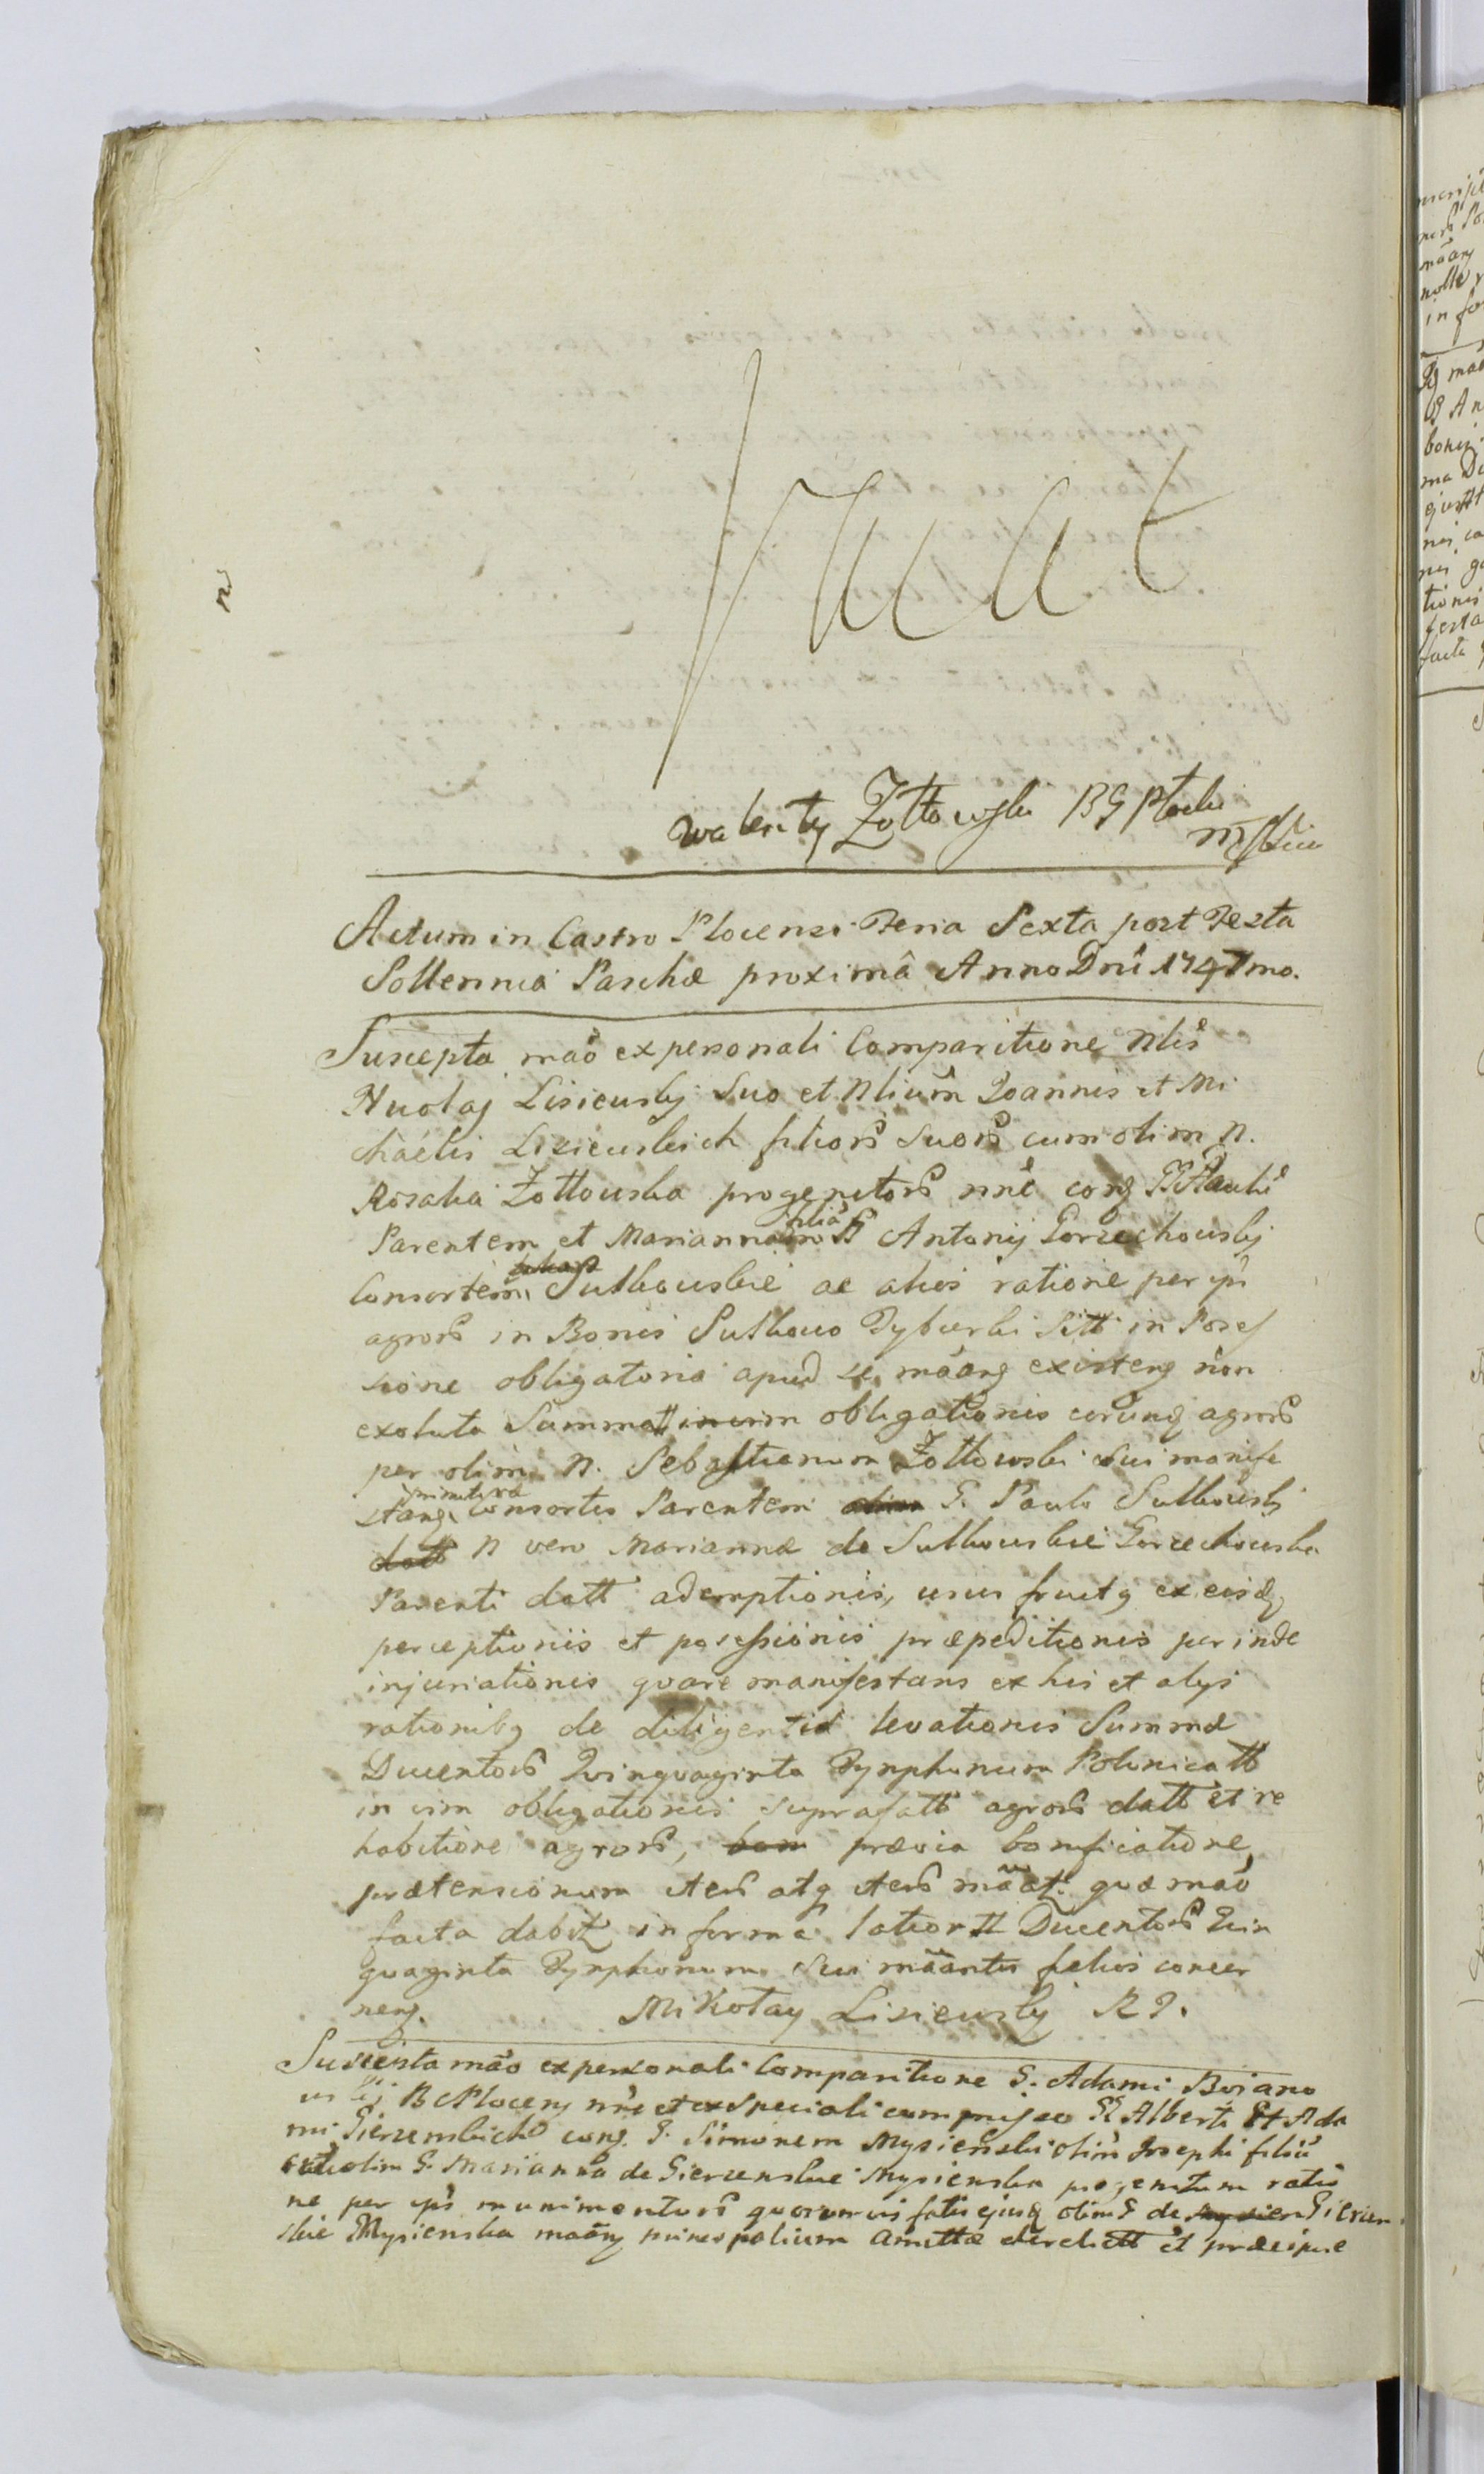 Walenty Żółtowski BG Płocki
mp
Actum in Castro Plocensi Feria Sexta post Festa
Sollennia Paschæ proximâ Anno Dnī 1747mo.
Suscepta mão ex personali Comparitione Nlis
Nicolaj Lisieuskj suo et Nlium Joannis et Mi
chaelis Lisieuskich filiorō suorō cum olim N.
Rosalia Żołtowska progenitorō nnē conq
Parentem et Mariannam filiā G Antonij Gorzechowskj
Consortem, Sutkouskie ac alios ratione per ips
agrorō in Bonis Sutkowo Dyburki sitt in Poses
sione obligatoria apud se mãanq existenq non
exoluta Summatt in vim obligationis eorunq agrorō
per olim N. Sebastianum Żołtowski sui manife
stanq primitiva Consortis Parentem G. Paulo Sutkouskj
N vero Mariannæ de Sutkouskie Gorzechouska
Parenti datt ademptionis, usus fructq ex eisdq
perceptionis et posessionis præpeditionis per inde
injuriationis quare manifestans ex his et alys
rationibq de diligentia levationis Summæ
Ducentorō Quinquaginta Tynphonum Polonicatt
in vim obligationis suprafatt agrorō datt et re
habitione agrorō, bon prævia bonificatione
prætensionum iterō atq iterō mãat. quæ mão
facta dabit in forma latiori Ducentorō Quin
quaginta Tynphonum sui mãantis filios concer
nenq. Mikołay Lisieuskj
Suscepta mão ex personali Comparitione G. Adami Boiano
uskj B Plocenq nne et ex speciali compromisso GG Alberti Et Ada
mi Gierzenskich conq. G. Simonem Mysienski olim Josephi filiū
olim G. Marianna de Gierzenskie Mysienska progenitum ratio
ne per ips munimentorō quorumvis fatis ejusq olim G de Mysien Gierzen
skie Mysienska mãanq et præcipue